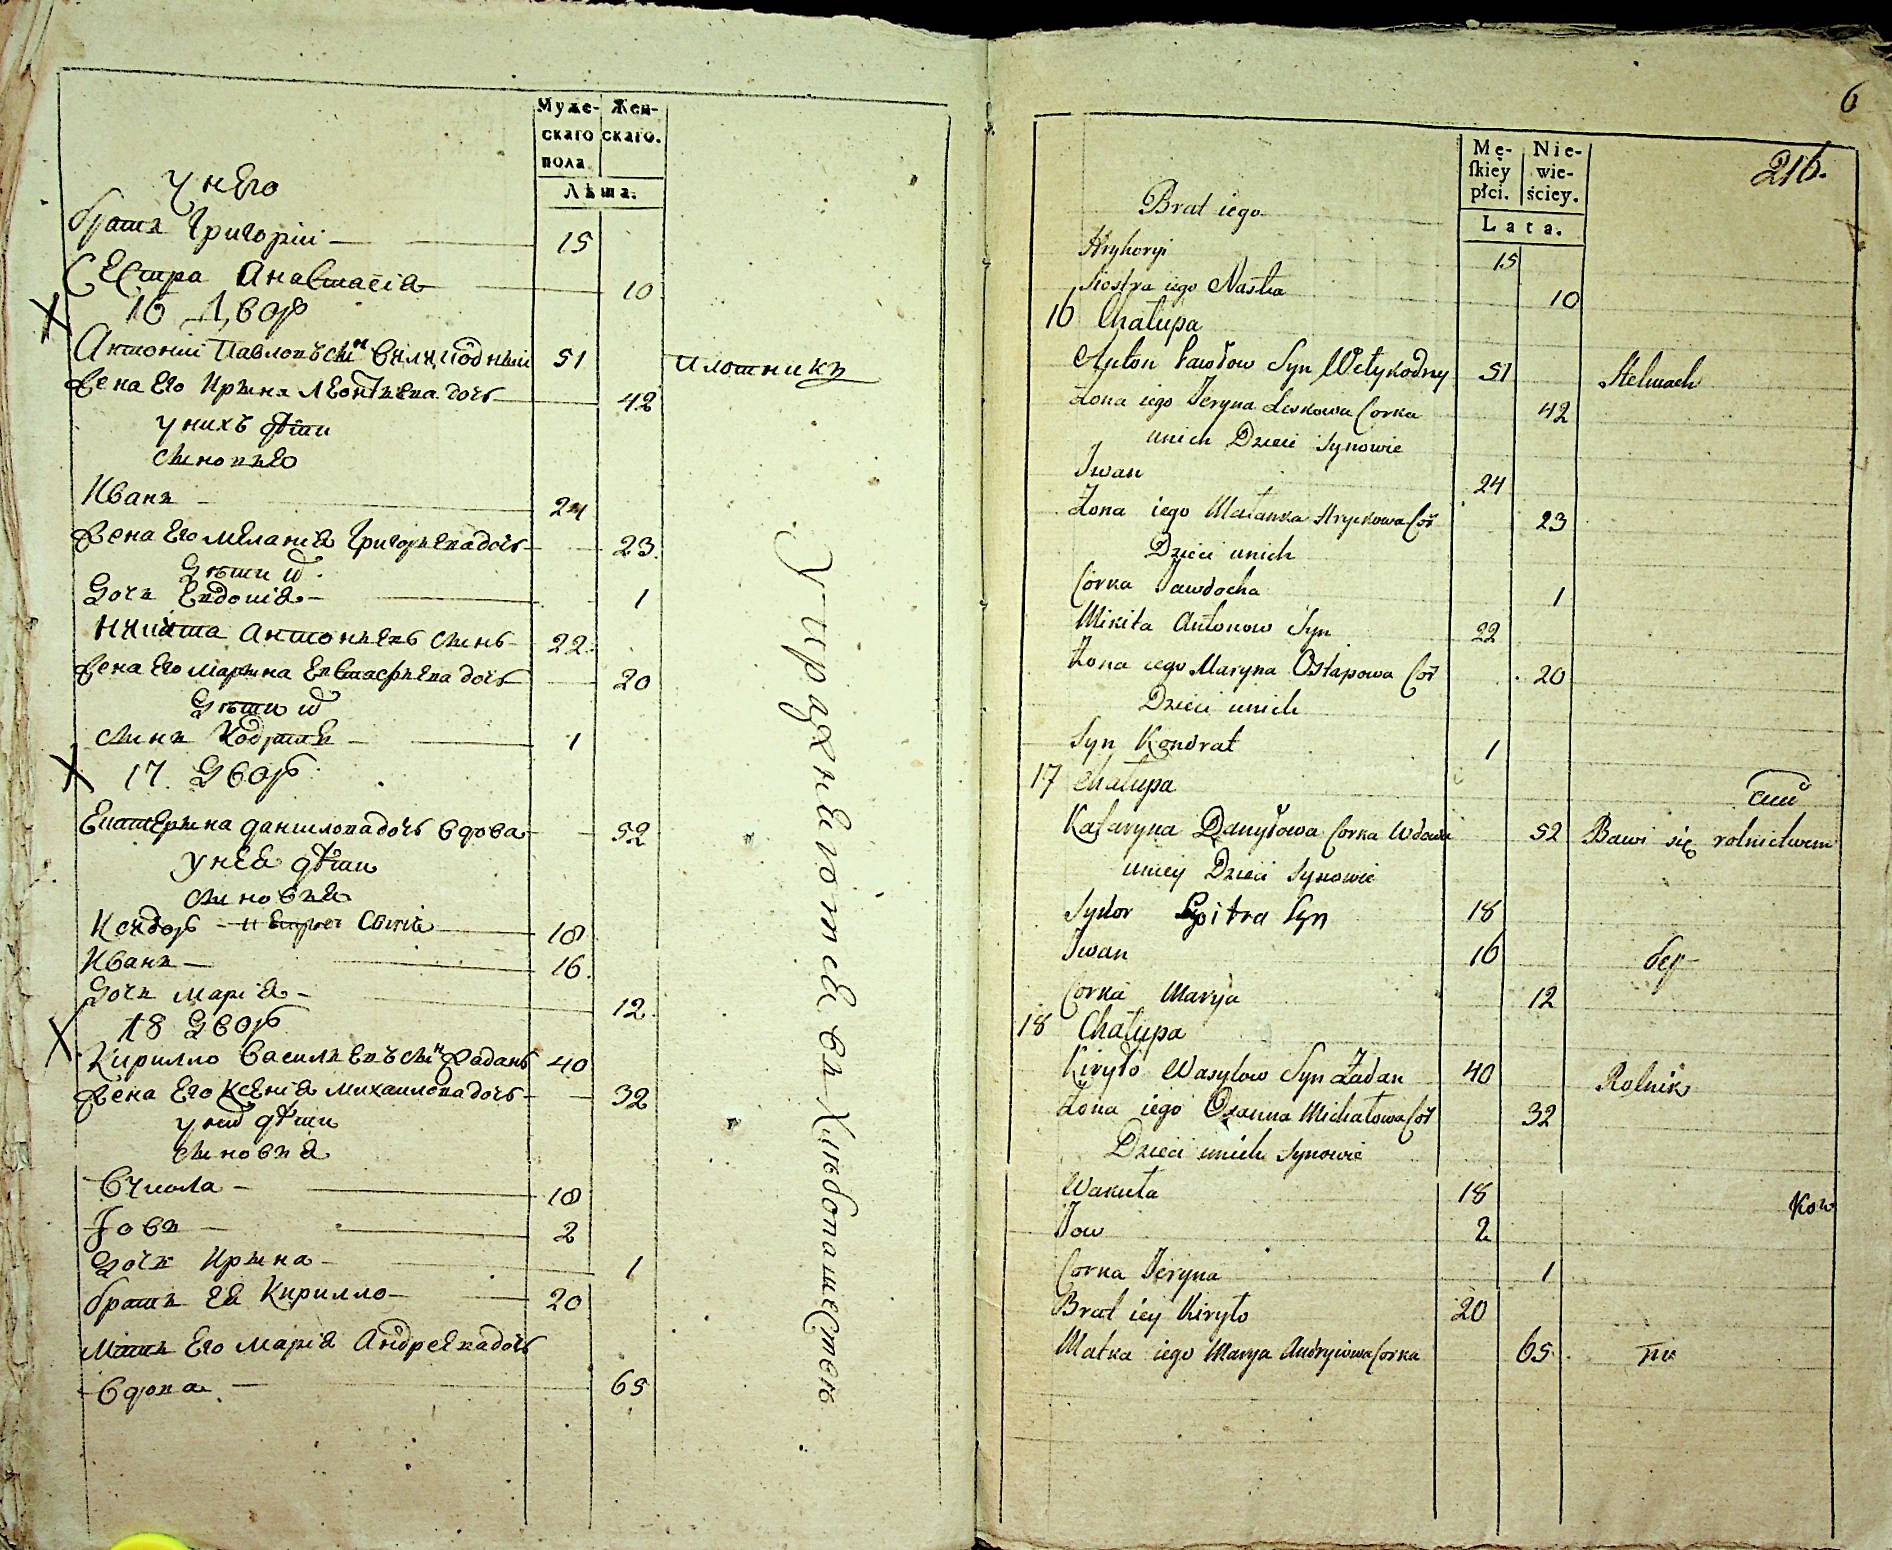 Муже-
скаго
пола
Жен-
скаго.
Лѣта.
у него
братъ Григорій 15
Сестра Анастасіа 10
16 Двор
Антоній Павловъ сынъ 51 плотникъ
Жена Его Ирына Леонтиева дочь 42
у нихъ дѣти
сыновье
Иванъ 24
Жена Его Меланіа Григориева дочь 23
Дѣти их
Дочъ Евдокіа 1
Никита Антониевъ сынъ 22
Жена Его Марына Евстафиева дочь 20
Дѣти их
сынъ Кодратъ 1
17 Двор
Екатерына Данилова дочь вдова 52
у неа дѣти
сыновья
Исидор 18
Иванъ 16
Дочъ Маріа 12
18 Двор
Кирилло Васильевъ сынъ Жаданъ 40
Жена Его Ксеніа Михаилова дочь 32
у них дѣти
сыновья
Вукола 18
Іовъ 2
Дочъ Ирына 1
братъ Еа Кирилло 20
Мать Его Маріа Андреева дочь
вдова 65
Упражняются въ Хлебопашестве
6
216.
Mę-
skiey
płci.
Nie-
wie-
ściey.
Lata.
Brat iego
Hryhoryi 15
Siostra iego Nastia 10
16 Chałupa
Anton Pawłow Syn Wełykodny 51 Stelmach
Żona iego Jeryna Leskowa Corka 42
unich Dzieci Synowie
Iwan 24
Żona iego Małanka Hryckowa Cor 23
Dzieci unich
Corka Jawdocha 1
Mikita Antonow Syn 22
Żona iego Maryna Ostapowa Cor 20
Dzieci unich
Syn Kondrat 1
17 Chałupa
Kataryna Danyłowa Corka Wdowa 52 Bawi się rolnictwem
uniey Dzieci Synowie
Sydor Syn 18
Iwan 16
Corka Marya 12
18 Chałupa
Kiryło Wasylow Syn Żadan 40 Rolnik
Żona iego Oxanna Michałowa Cor 32
Dzieci unich Synowie
Wakuła 18
Kow
Jow 2
Corka Jeryna 1
Brat iey Kiryło 20
Matka iego Marya Andryiowa Corka 65